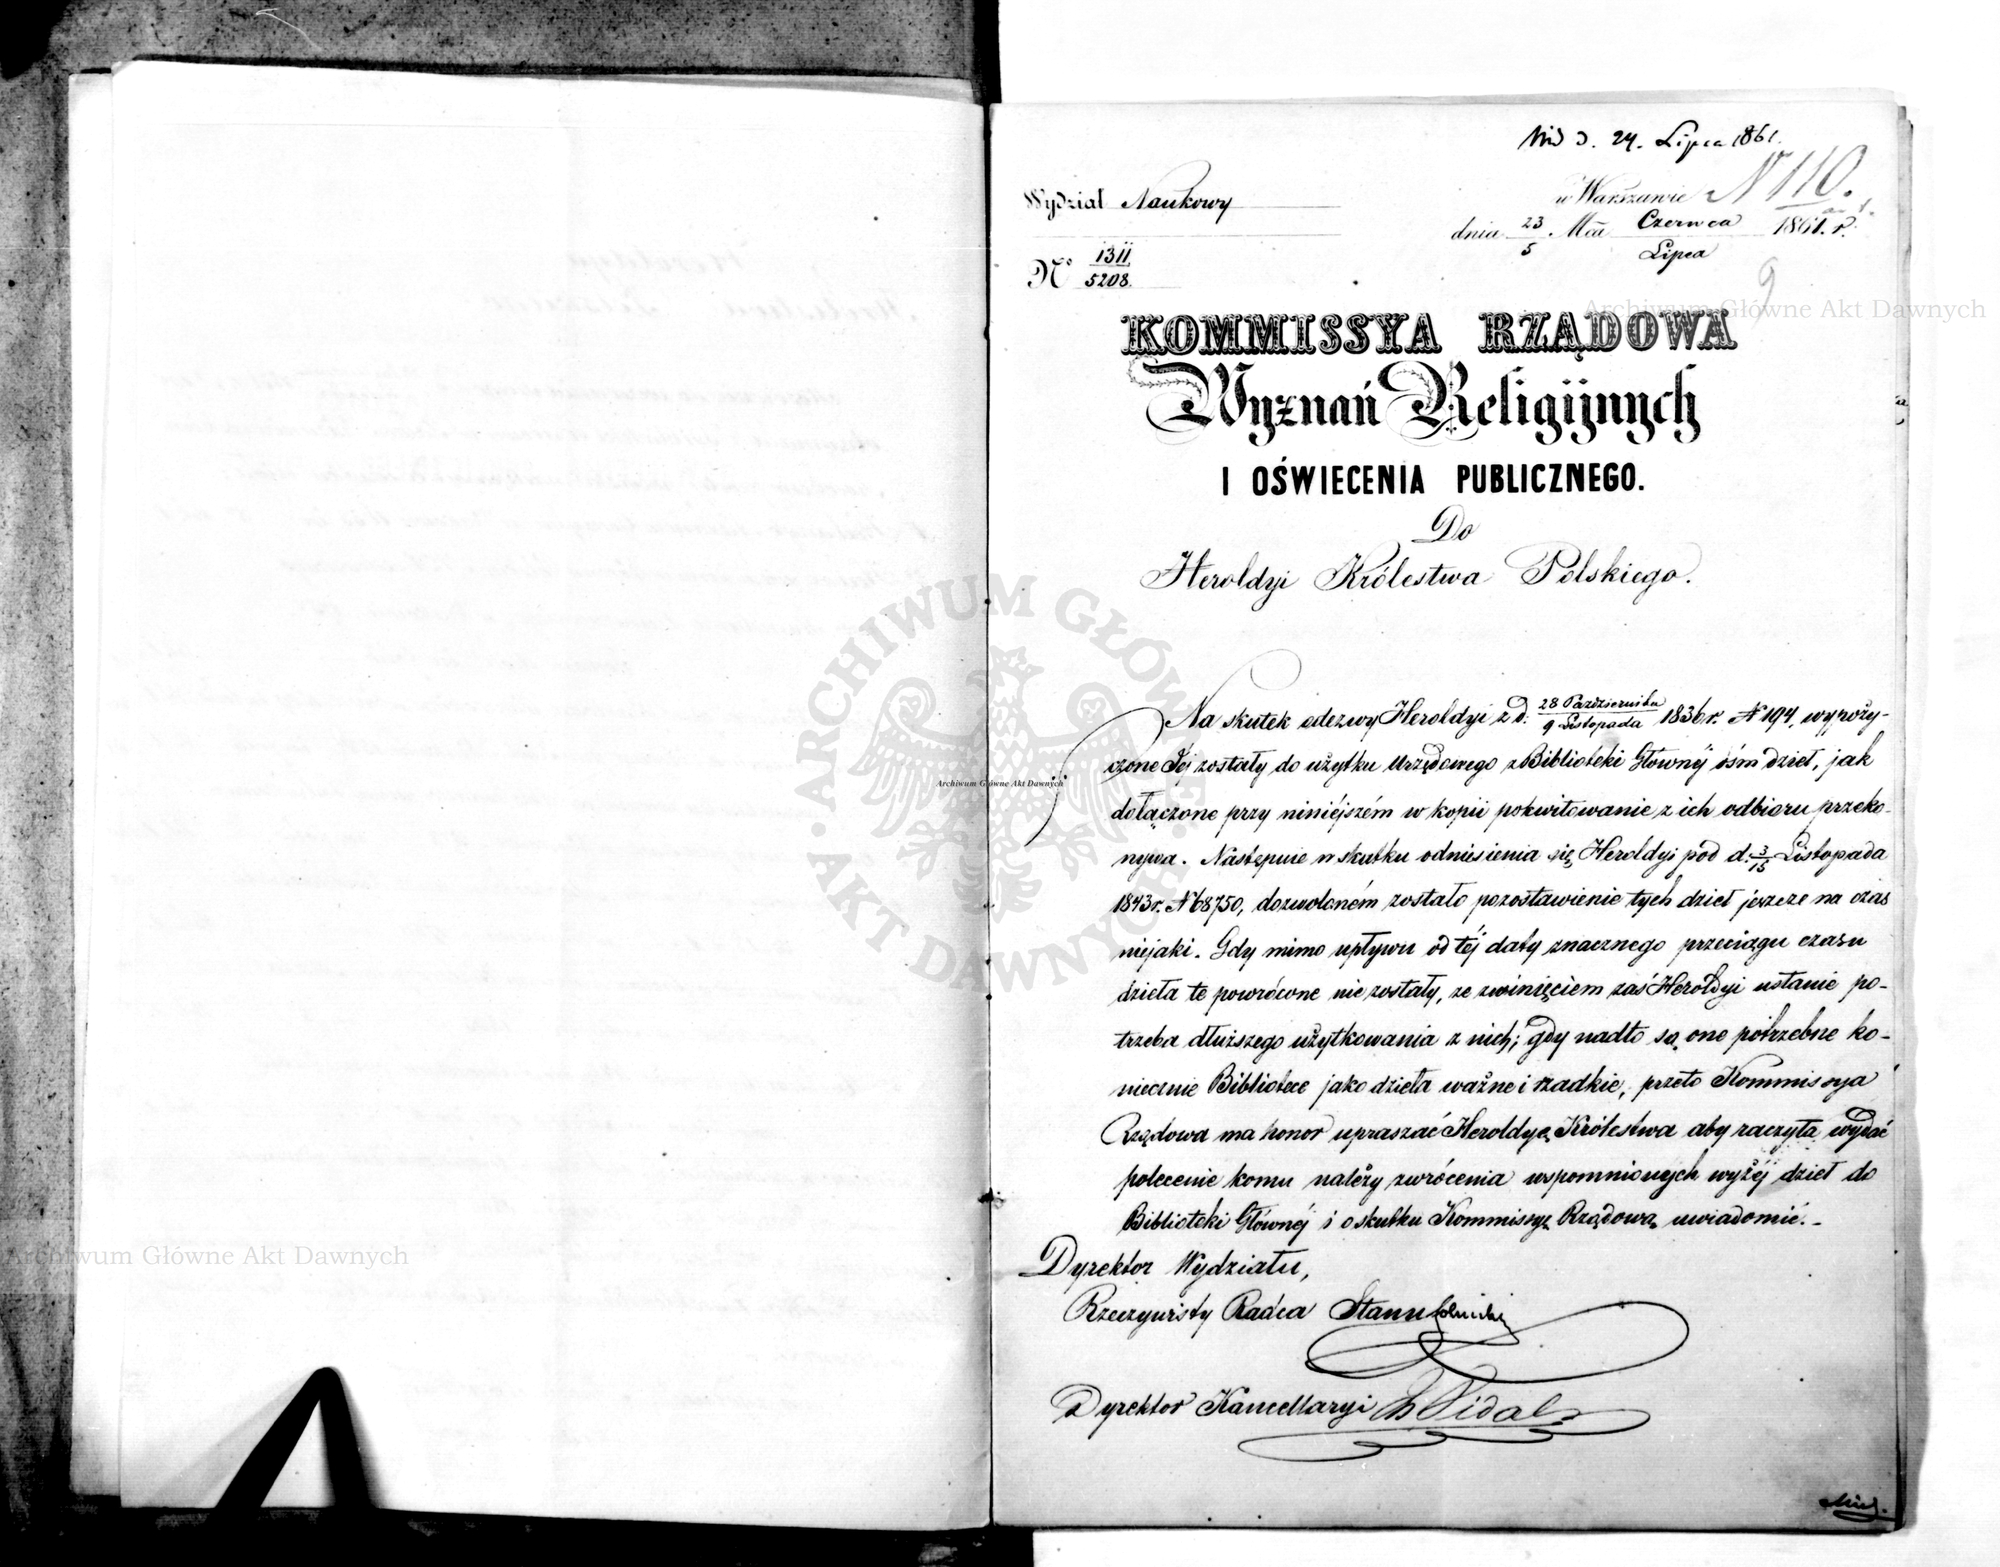 d. 24. Lipca 1861.
Wydział Naukowy
w Warszawie N 110.
dnia 23/5 Mca Czerwca/Lipca 1861. r.
No 1311/5208.
9
KOMMISSYA RZĄDOWA
Wyznań Religijnych
I OŚWIECENIA PUBLICZNEGO.
Do
Heroldyi Królestwa Polskiego.
Na skutek odezwy Heroldyi z d. 28 Października/9 Listopada 1836 r. N 194, wypoży-
czone Jej zostały do użytku urzędowego z Biblioteki Głównéj óśm dzieł, jak
dołączone przy niniéjszém w kopii pokwitowanie z ich odbioru przeko-
nywa. Następnie w skutku odniesienia się Heroldyi pod d. 3/15 Listopada
1843 r. N 68750, dozwoloném zostało pozostawienie tych dzieł jeszcze na czas
niejaki. Gdy mimo upływu od téj daty znacznego przeciągu czasu
dzieła te powrócone nie zostały, ze zwinięciem zaś Heroldyi ustanie po-
trzeba dłuższego użytkowania z nich; gdy nadto są one potrzebne ko-
niecznie Bibliotece jako dzieła ważne i rzadkie, przeto Kommissya
Rządowa ma honor upraszać Heroldyę Królestwa aby raczyła wydać
polecenie komu należy zwrócenia wspomnionych wyżéj dzieł do
Biblioteki Głównéj i o skutku Kommissyę Rządową uwiadomić. -
Dyrektor Wydziału,
Rzeczywisty Radca Stanu
Dyrektor Kancellaryi Vidal
Archiwum Główne Akt Dawnych
Archiwum Główne Akt Dawnych
Archiwum Główne Akt Dawnych
· ARCHIWUM GŁÓWNE · AKT DAWNYCH